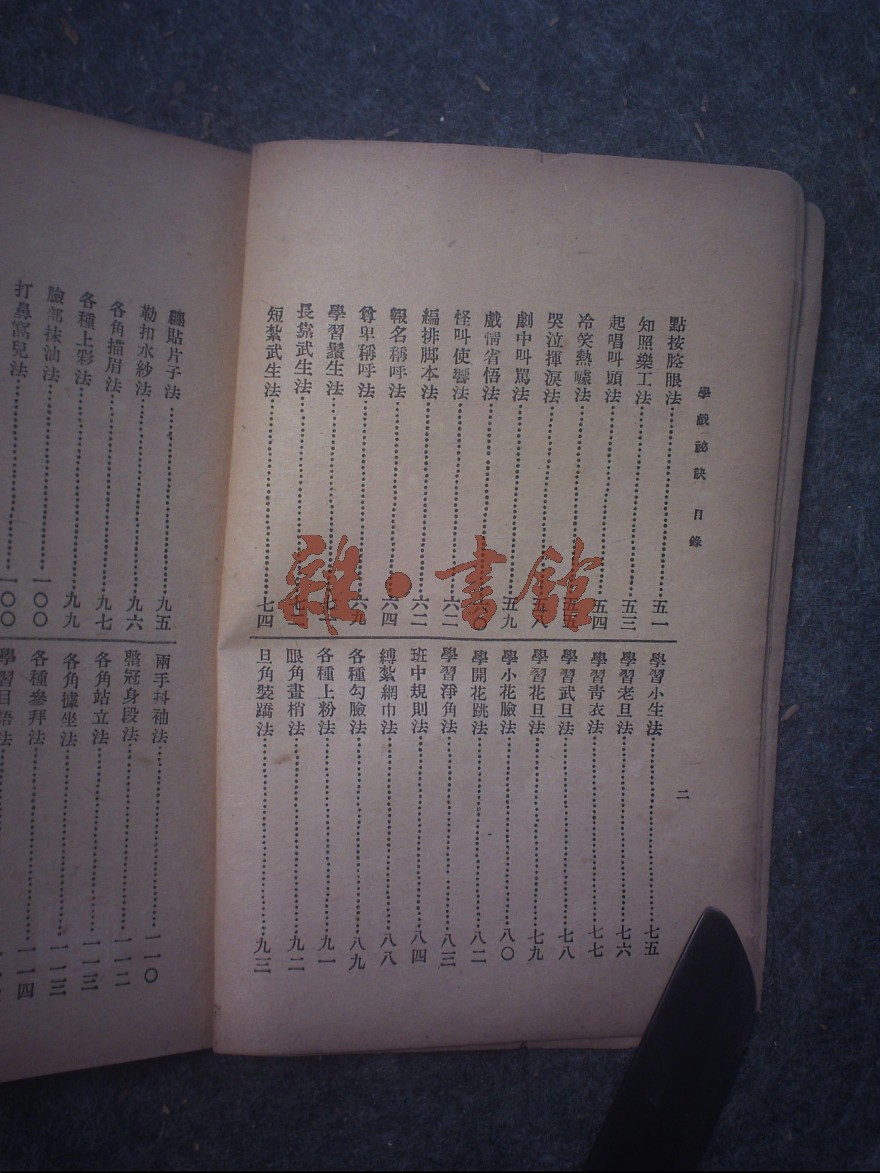 學戲祕訣 目錄
二
點按腔眼法 五一
知照樂工法 五三
起唱叫頭法 五四
冷笑熱嘘法 五五
哭泣揮淚法 五八
劇中叫罵法 五九
戲情省悟法 六〇
怪叫使響法 六二
編排脚本法 六二
報名稱呼法 六四
尊卑稱呼法 六九
學習鬚生法
長靠武生法
短紥武生法 七四
學習小生法 七五
學習老旦法 七六
學習靑衣法 七七
學習武旦法 七八
學習花旦法 七九
學小花臉法 八〇
學開花跳法 八二
學習淨角法 八三
班中規則法 八四
縛紥網巾法 八八
各種勾臉法 八九
各種上粉法 九一
眼角畫梢法 九二
旦角裝蹻法 九三
貼片子法 九五
勒扣水紗法 九六
各角描眉法 九七
各種上彩法 九九
臉部抹油法 一〇〇
打鼻窩兒法 一〇〇
兩手抖袖法 一一〇
整冠身段法 一一二
各角站立法 一一三
各角據坐法 一一三
各種參拜法 一一四
學習目語法
雜·書館